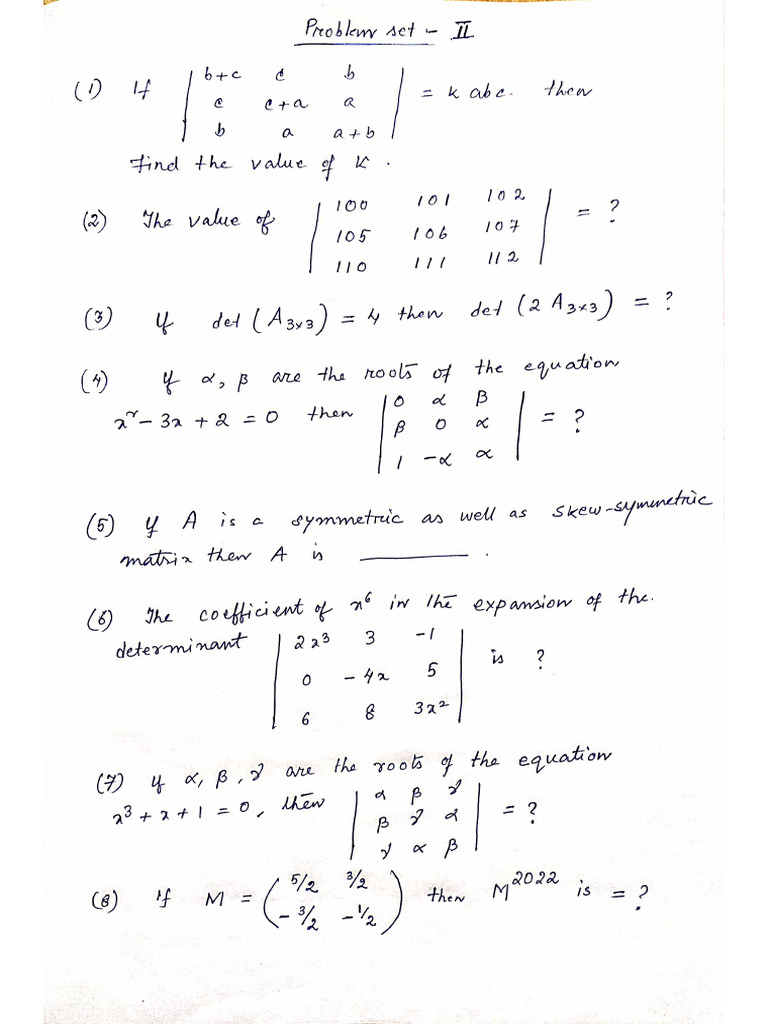 Problem set - II
(1) If | b+c c b |
| c c+a a | = k abc. then
| b a a+b |
find the value of k.
(2) The value of | 100 101 102 |
| 105 106 107 | = ?
| 110 111 112 |
(3) If det (A3×3) = 4 then det (2 A3×3) = ?
(4) If α, β are the roots of the equation
x² - 3x + 2 = 0 then | 0 α β |
| β 0 α | = ?
| 1 -α α |
(5) If A is a symmetric as well as skew-symmetric
matrix then A is ________.
(6) The coefficient of x⁶ in the expansion of the.
determinant | 2x³ 3 -1 |
| 0 -4x 5 | is ?
| 6 8 3x² |
(7) If α, β, γ are the roots of the equation
x³ + x + 1 = 0, then | α β γ |
| β γ α | = ?
| γ α β |
(8) If M = ( 5/2 3/2 )
( -3/2 -1/2 ) then M²⁰²² is = ?